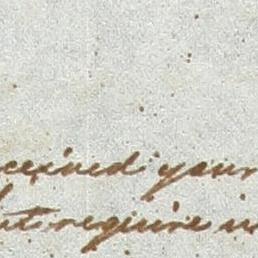 ceived your
but require